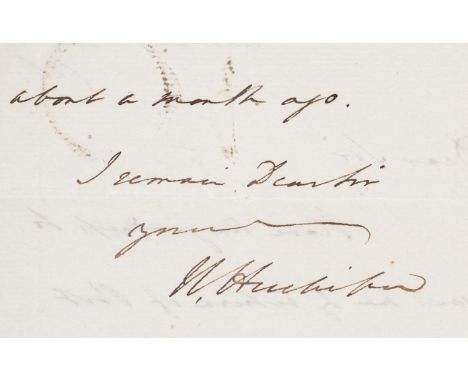 about a month ago.
I remain Dear Sir
yours
W. Huskisson